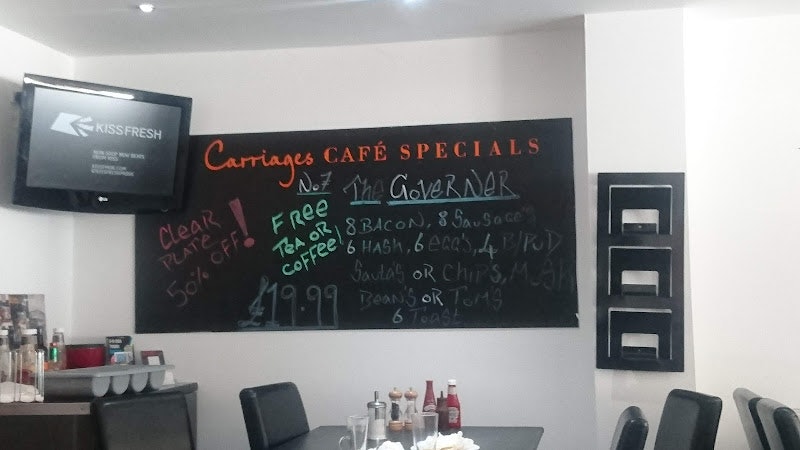 KISS FRESH
Carriages CAFÉ SPECIALS
No7 The GOVERNER
CLEAR
PLATE
50% OFF!
FREE
TEA OR
COFFEE!
£19.99
8 BACON, 8 Sausages
6 HASH, 6 eggs, 4 B/PUD
Saute's OR CHIPS, MUSH
Bean's OR Toms
6 Toast